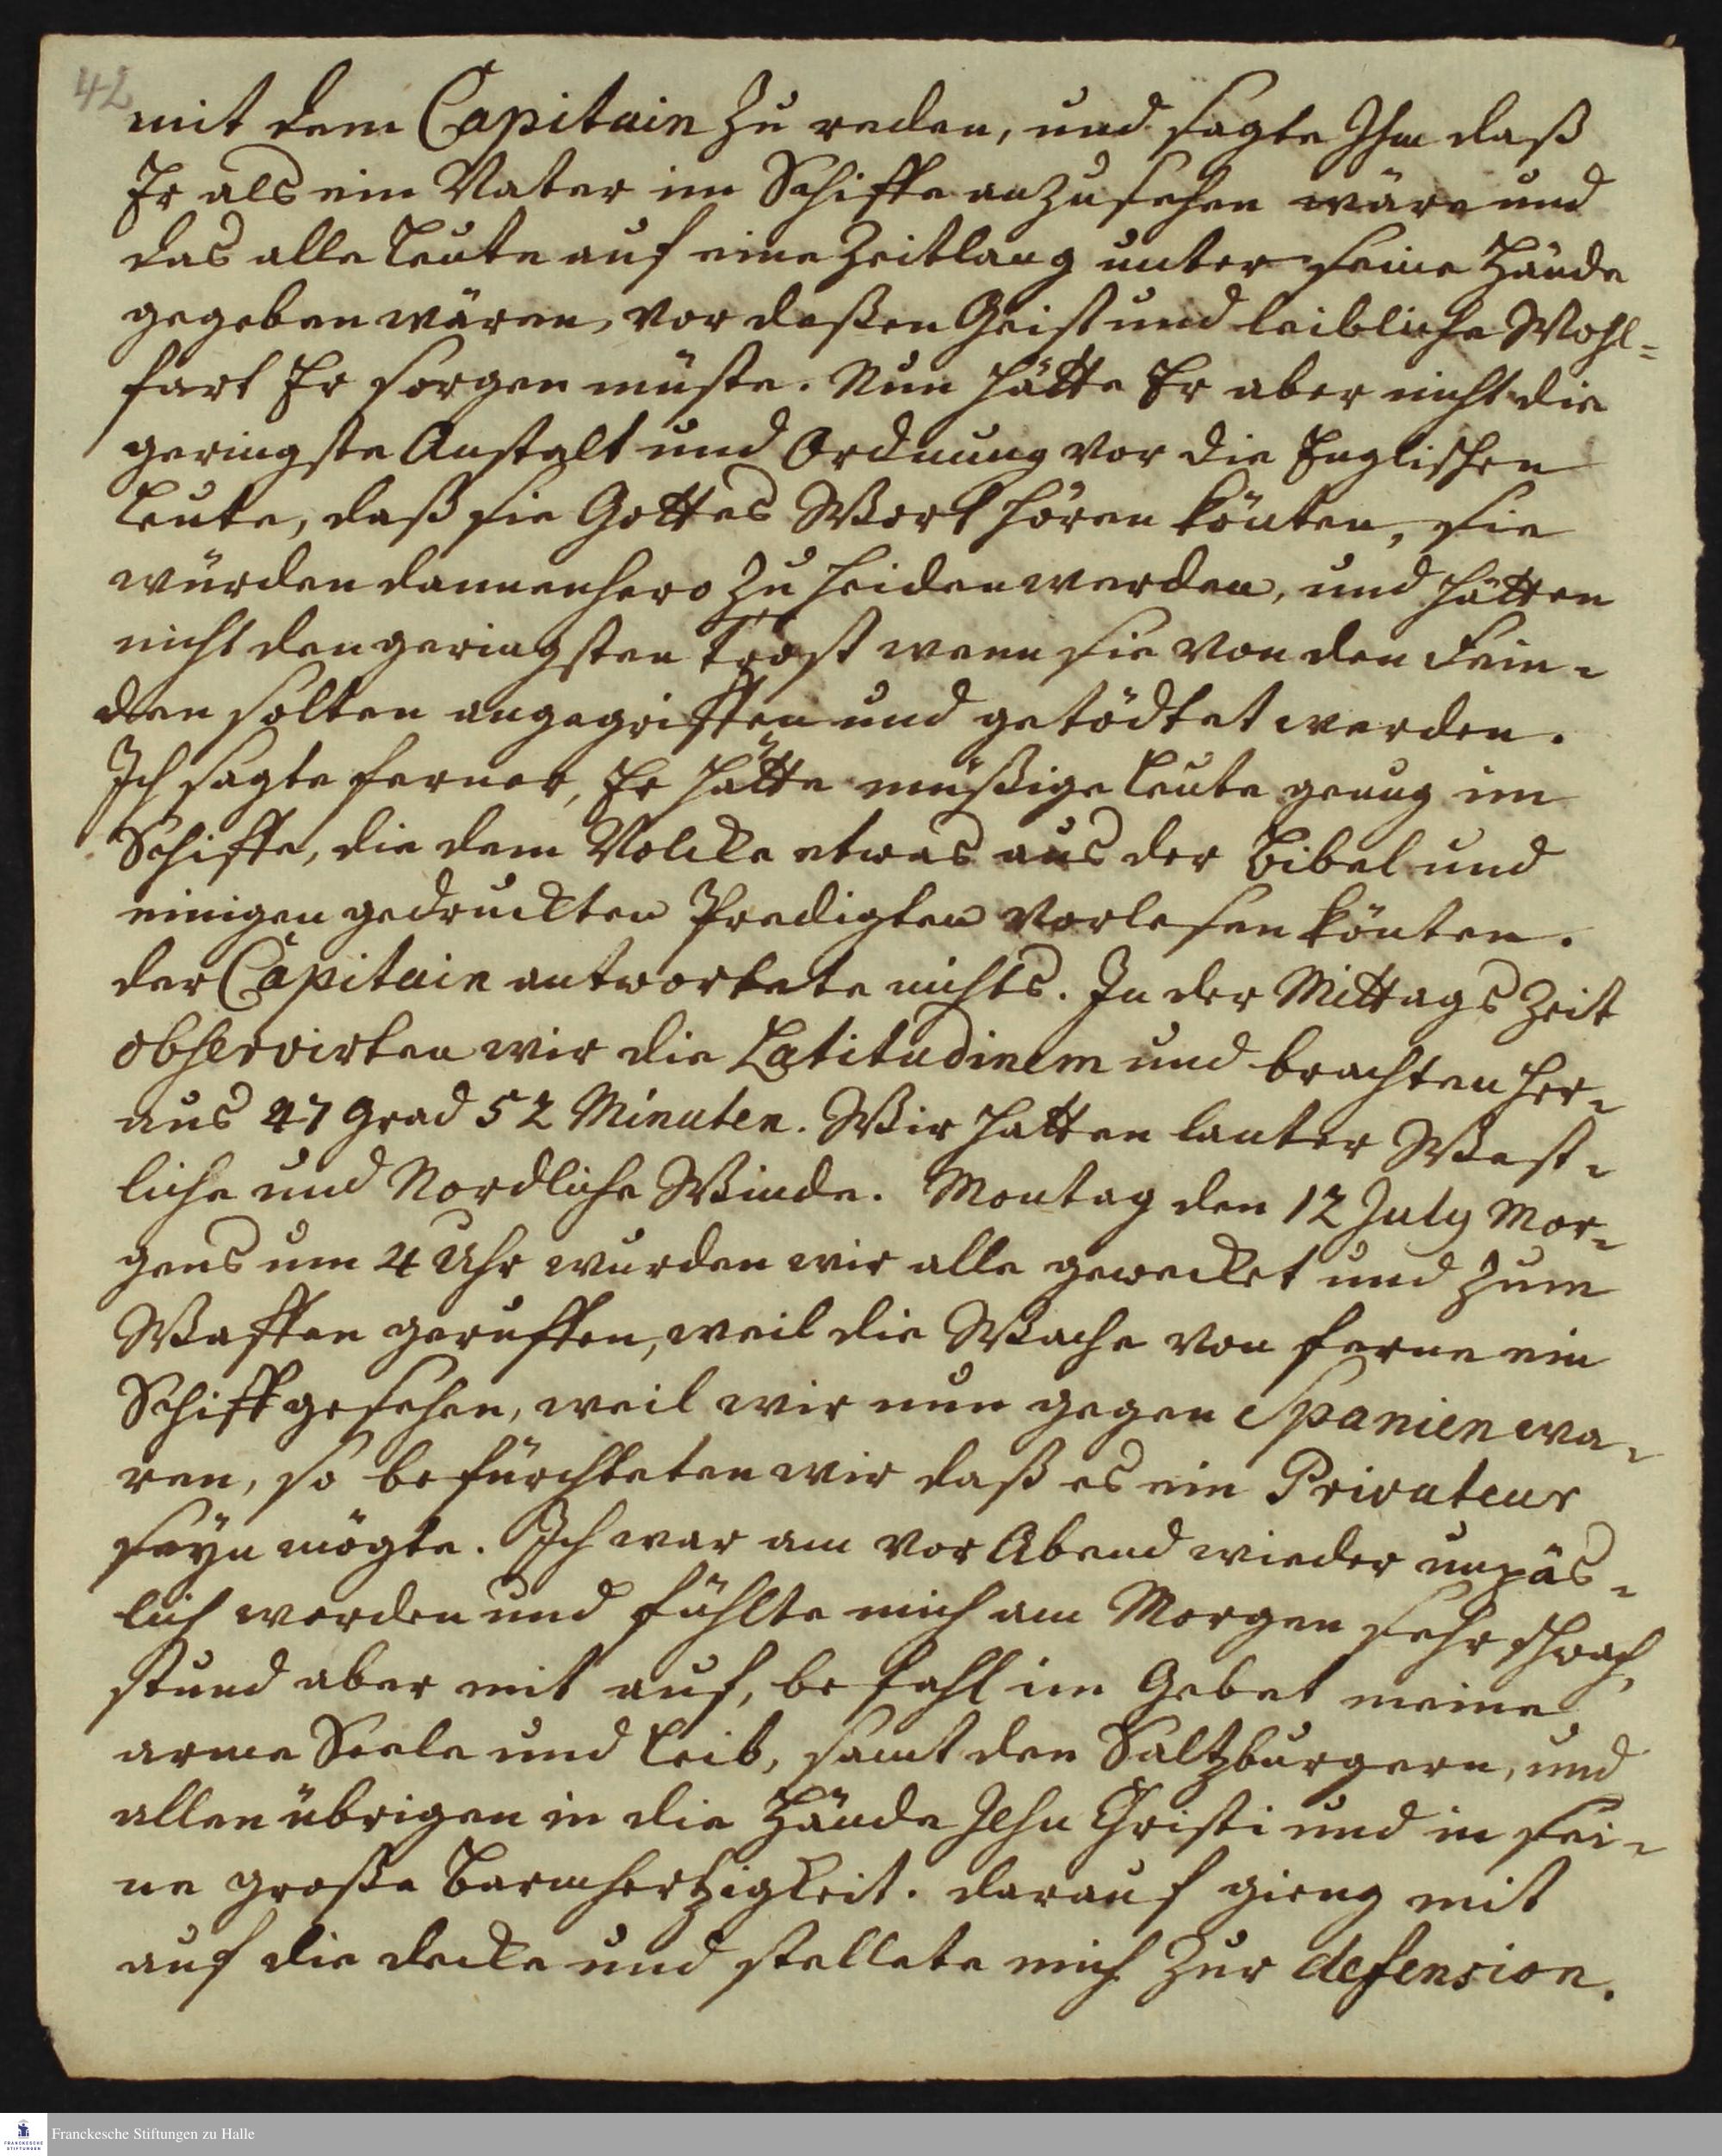 42
mit dem Capitain zu reden, und sagte Ihm daß
Er als ein Vater im Schiffe anzusehen wäre und
das alle Leute auf eine Zeitlang unter seine Hände
gegeben wären, vor deßen Geist und leibliche Wohl=
fart Er sorgen müste. Nun hätte Er aber nicht die
geringste Anstalt und Ordnung vor die Englischen
Leute, daß sie Gottes Wort hören könten, sie
würden dannenhero zu Heiden werden, und hätten
nicht den geringsten Trost wenn sie von den Fein-
den solten angegriffen und getödtet werden.
Ich sagte ferner, Er hätte müßige Leute genug im
Schiffe, die dem Volcke etwas aus der Bibel und
einigen gedruckten Predigten vorlesen könten.
der Capitain antwortete nichts. In der Mittags Zeit
observirten wir die Latitudinem und brachten her-
aus 47 Grad 52 Minuten. Wir hatten lauter West-
liche und Nordliche Winde. Montag den 12 July Mor-
gens um 4 Uhr wurden wir alle gewecket und zum
Waffen geruffen, weil die Wache von ferne ein
Schiff gesehen, weil wir nun gegen Spanien wa-
ren, so befürchteten wir daß es ein Privateur
seyn mögte. Ich war am vor Abend wieder unpäs-
lich worden und fühlte mich am Morgen sehr schwach,
stund aber mit auf, befahl im Gebet meine
arme Seele und Leib, samt den Saltzburgern, und
allen übrigen in die Hände Jesu Christi und in sei-
ne große Barmhertzigkeit. darauf gieng mit
auf die decke und stellete mich zur defension.
Franckesche Stiftungen zu Halle
FRANCKESCHE
STIFTUNGEN